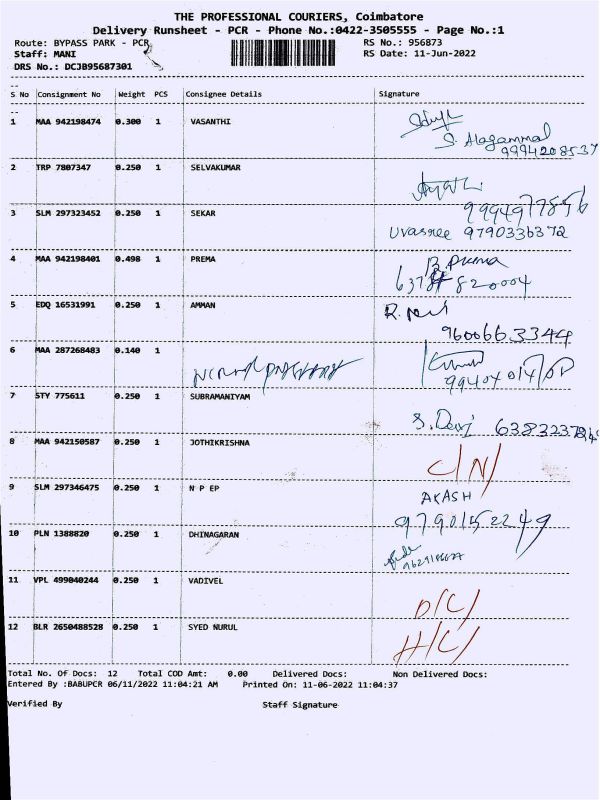 THE PROFESSIONAL COURIERS, Coimbatore
Delivery Runsheet - PCR - Phone No.:0422-3505555 - Page No.:1
Route: BYPASS PARK - PCR RS No.: 956873
Staff: MANI RS Date: 11-Jun-2022
DRS No.: DCJB95687301
S No Consignment No Weight PCS Consignee Details Signature
1 MAA 942198474 0.300 1 VASANTHI
S. Alagammal
9994208537
2 TRP 7807347 0.250 1 SELVAKUMAR
3 SLM 297323452 0.250 1 SEKAR
9994977856
9790336372
4 MAA 942198401 0.498 1 PREMA
B. Prema
820004
5 EDQ 16531991 0.250 1 AMMAN
R.
9600663344
6 MAA 287268483 0.140 1
7 STY 775611 0.250 1 SUBRAMANIYAM
S. Devi
8 MAA 942150587 0.250 1 JOTHIKRISHNA
C/N/
9 SLM 297346475 0.250 1 N P EP
AKASH
9790152249
10 PLN 1388820 0.250 1 DHINAGARAN
11 VPL 499040244 0.250 1 VADIVEL
D/C/
12 BLR 2650488528 0.250 1 SYED NURUL
H/C/
Total No. Of Docs: 12 Total COD Amt: 0.00 Delivered Docs: Non Delivered Docs:
Entered By :BABUPCR 06/11/2022 11:04:21 AM Printed On: 11-06-2022 11:04:37
Verified By Staff Signature